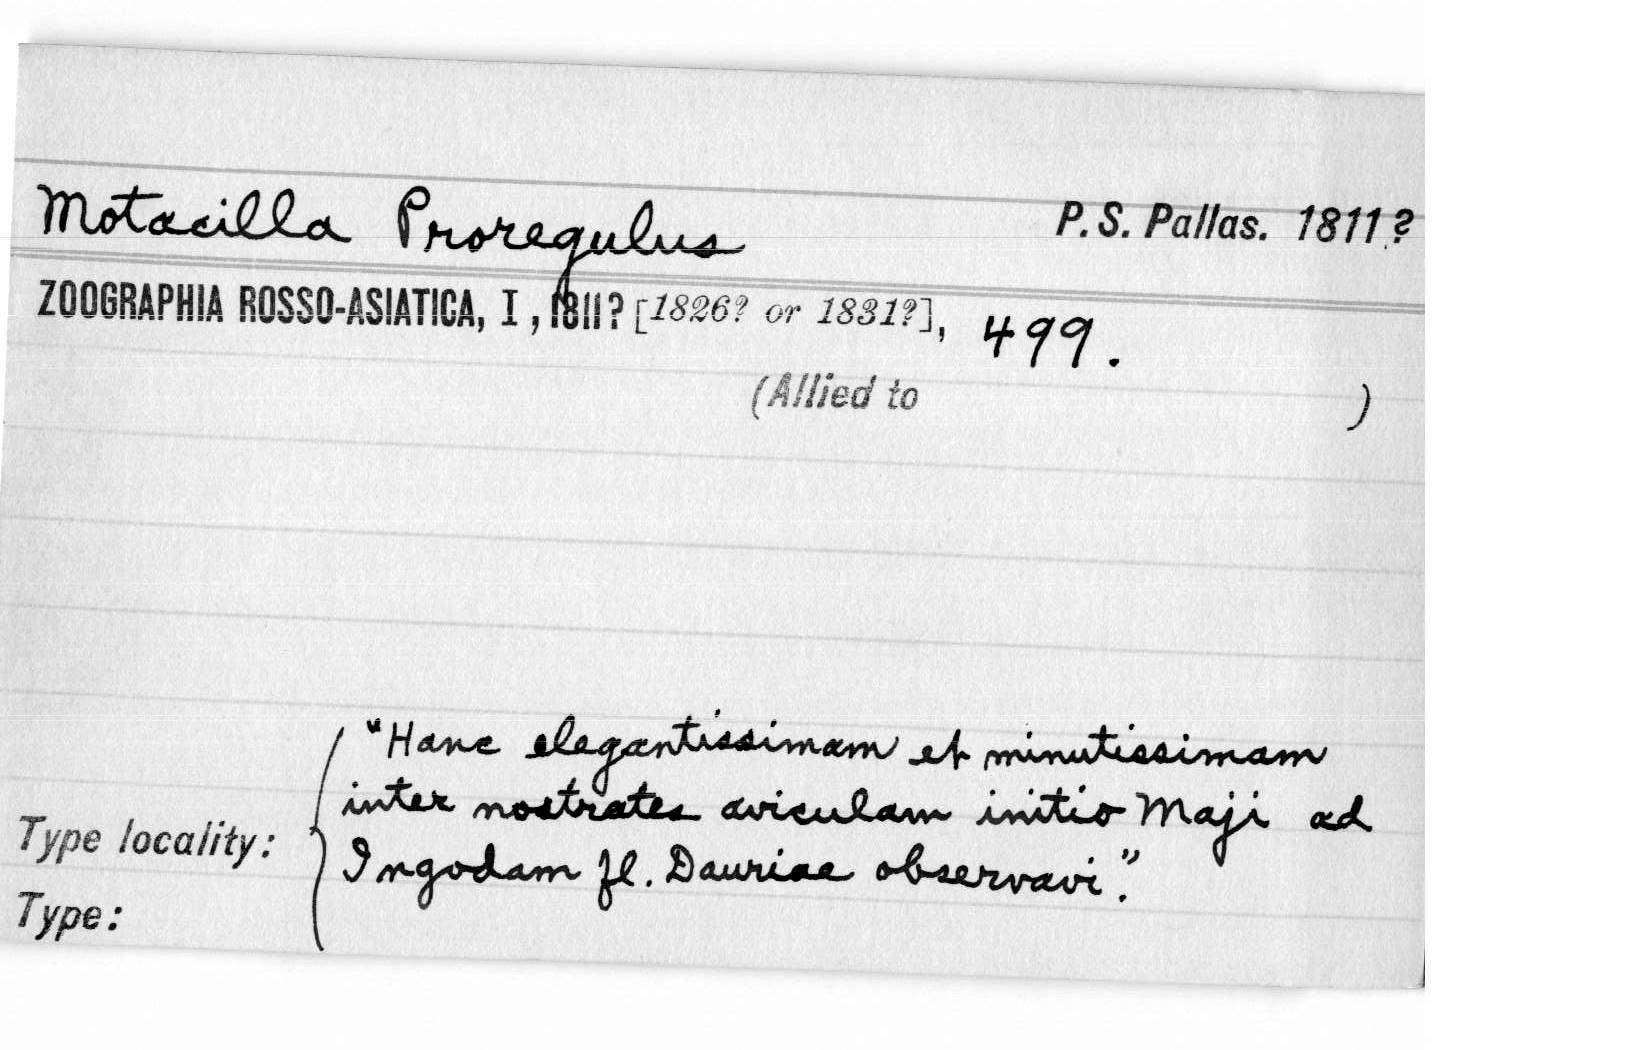 Motacilla Proregulus P. S. Pallas. 1811?
ZOOGRAPHIA ROSSO-ASIATICA, I, 1811? [1826? or 1831?], 499.
(Allied to )
"Hanc elegantissimam et minutissimam
inter nostrates aviculam initio Maji ad
Type locality: Ingodam fl. Dauriae observavi."
Type: